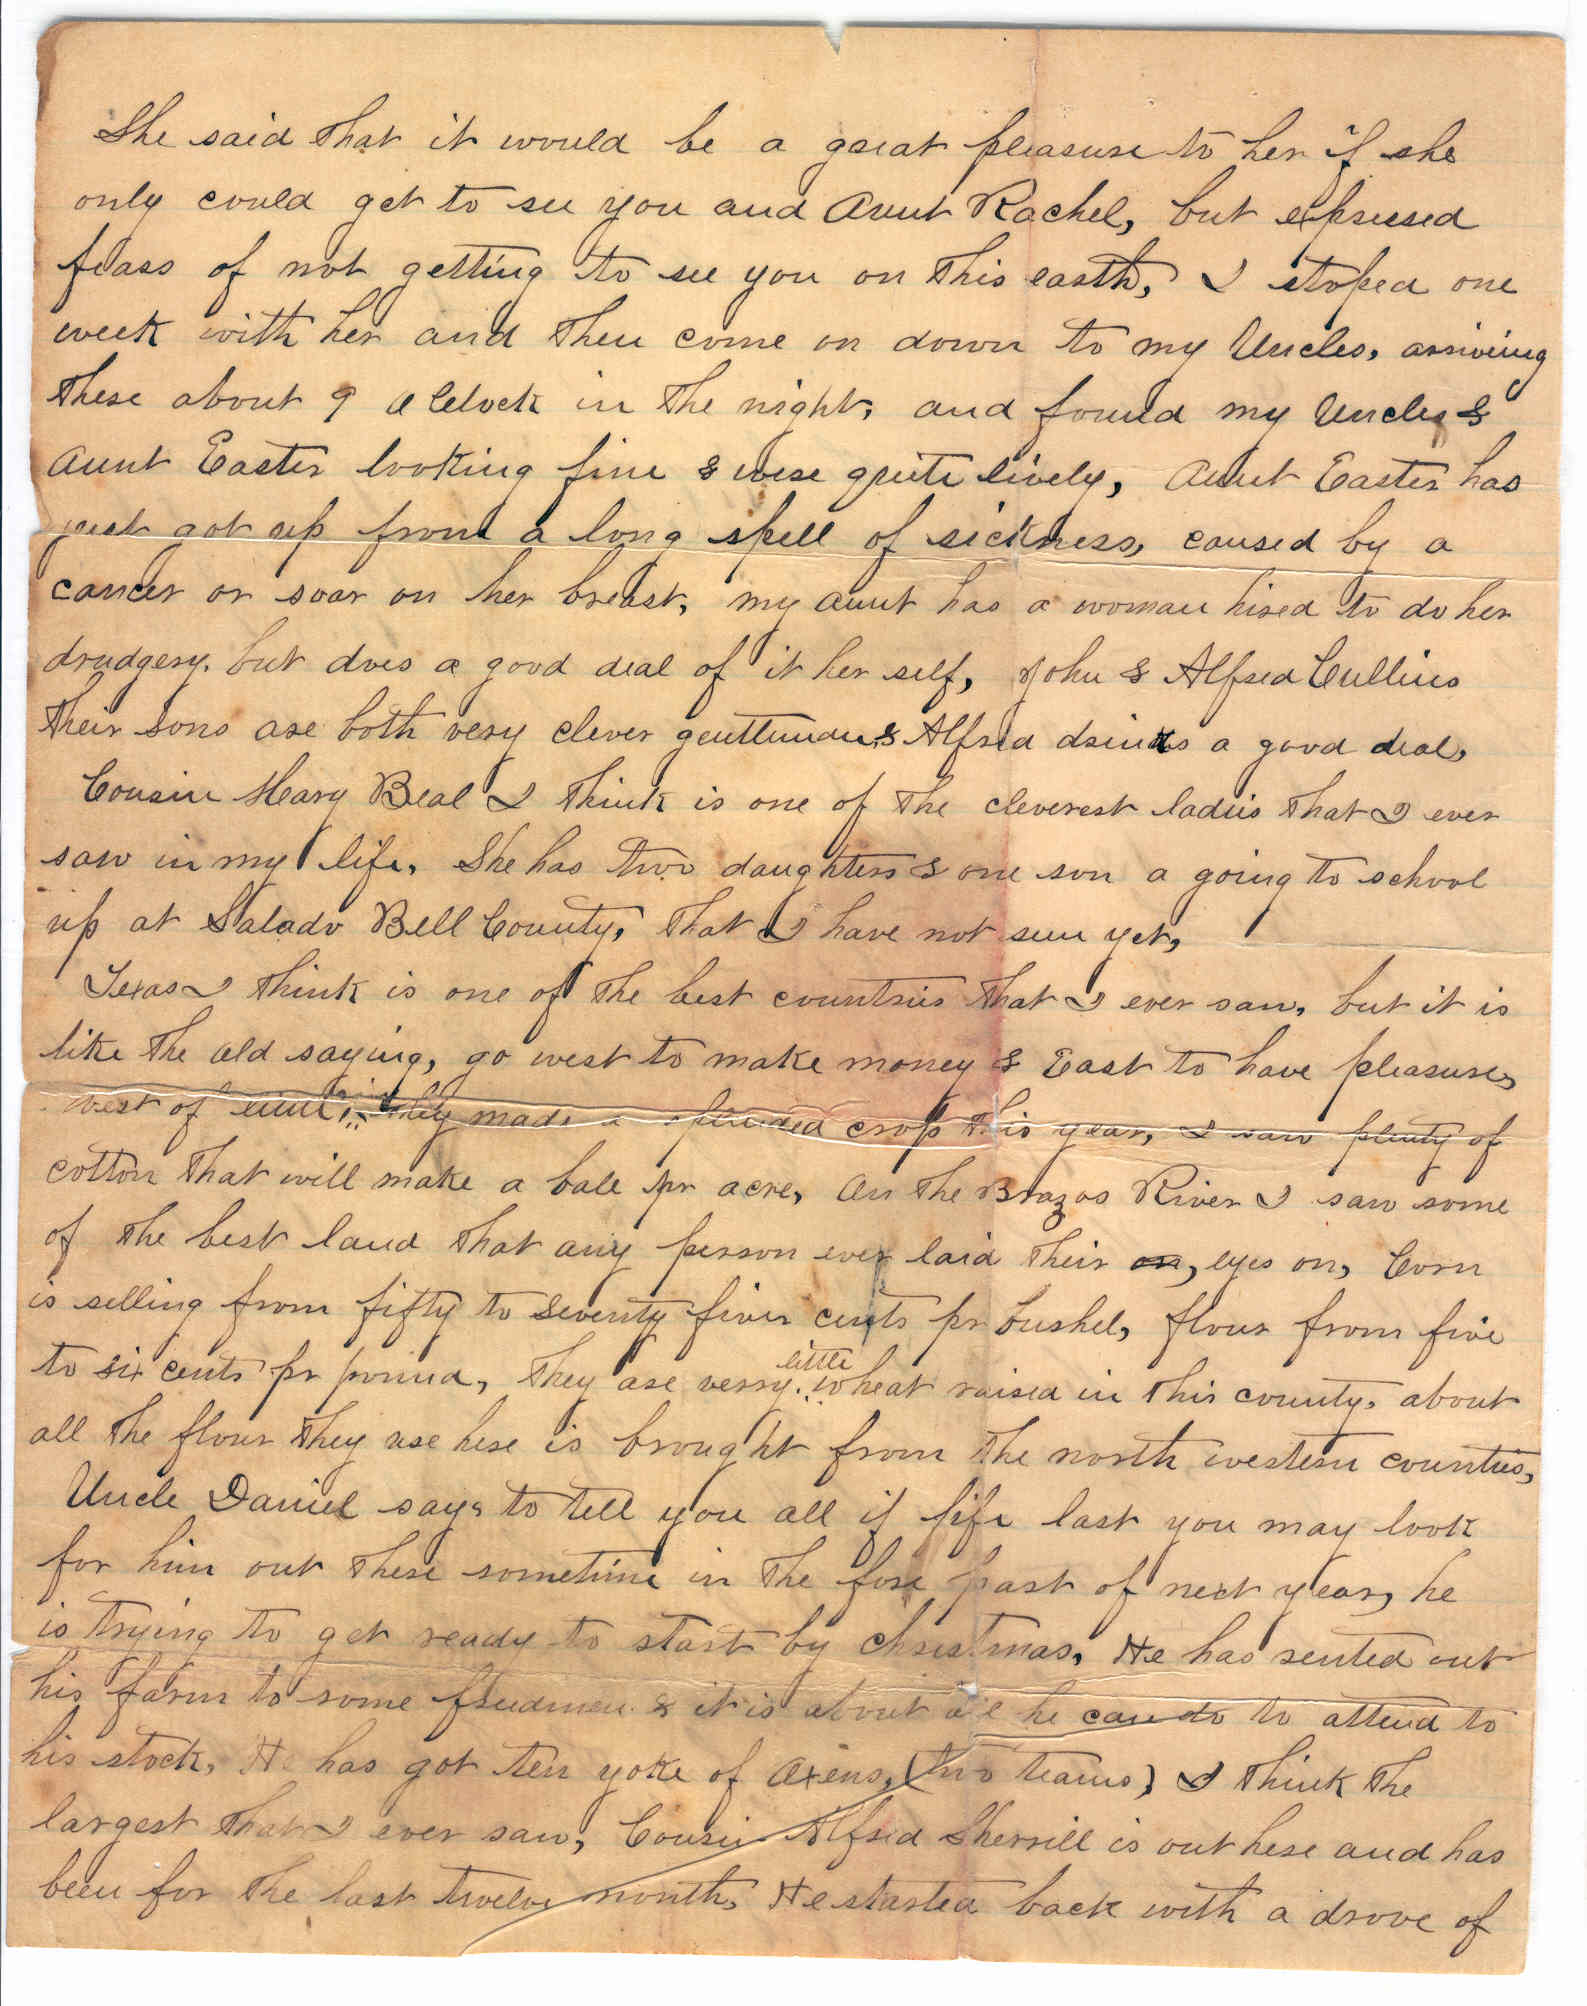 She said that it would be a great pleasure to her if she
only could get to see you and Aunt Rachel, but expressed
fears of not getting to see you on this earth, I stoped one
week with her and then come on down to my Uncles, arriving
there about 9 oClock in the night, and found my Uncles &
Aunt Easter looking fine & were quite lively, Aunt Easter has
just got up from a long spell of sickness, caused by a
cancer or soar on her breast, my aunt has a woman hired to do her
drudgery, but does a good deal of it her self, John & Alfred Cullins
their sons are both very clever gentleman & Alfred drinks a good deal,
Cousin Mary Beal I think is one of the cleverest ladies that I ever
saw in my life, She has two daughters & one son a going to school
up at Salado Bell County, that I have not seen yet,
Texas I think is one of the best countries that I ever saw, but it is
like the old saying, go west to make money & East to have pleasure,
west of they made a splended crop this year, I saw plenty of
cotton that will make a bale pr acre, on the Brazos River I saw some
of the best land that any person ever laid their on, eyes on, Corn
is selling from fifty to seventy five cents pr bushel, flour from five
to six cents pr pound, they are verry little wheat raised in this county, about
all the flour they use here is brought from the north western counties,
Uncle Daniel says to tell you all if life last you may look
for him out there sometime in the fore part of next year, he
is trying to get ready to start by christmas, He has rented out
his farm to some freedmen & it is about all he can do to attend to
his stock, He has got ten yoke of oxens, (two teams) I think the
largest that I ever saw, Cousin Alfred Sherrill is out here and has
been for the last twelve month, He started back with a drove of